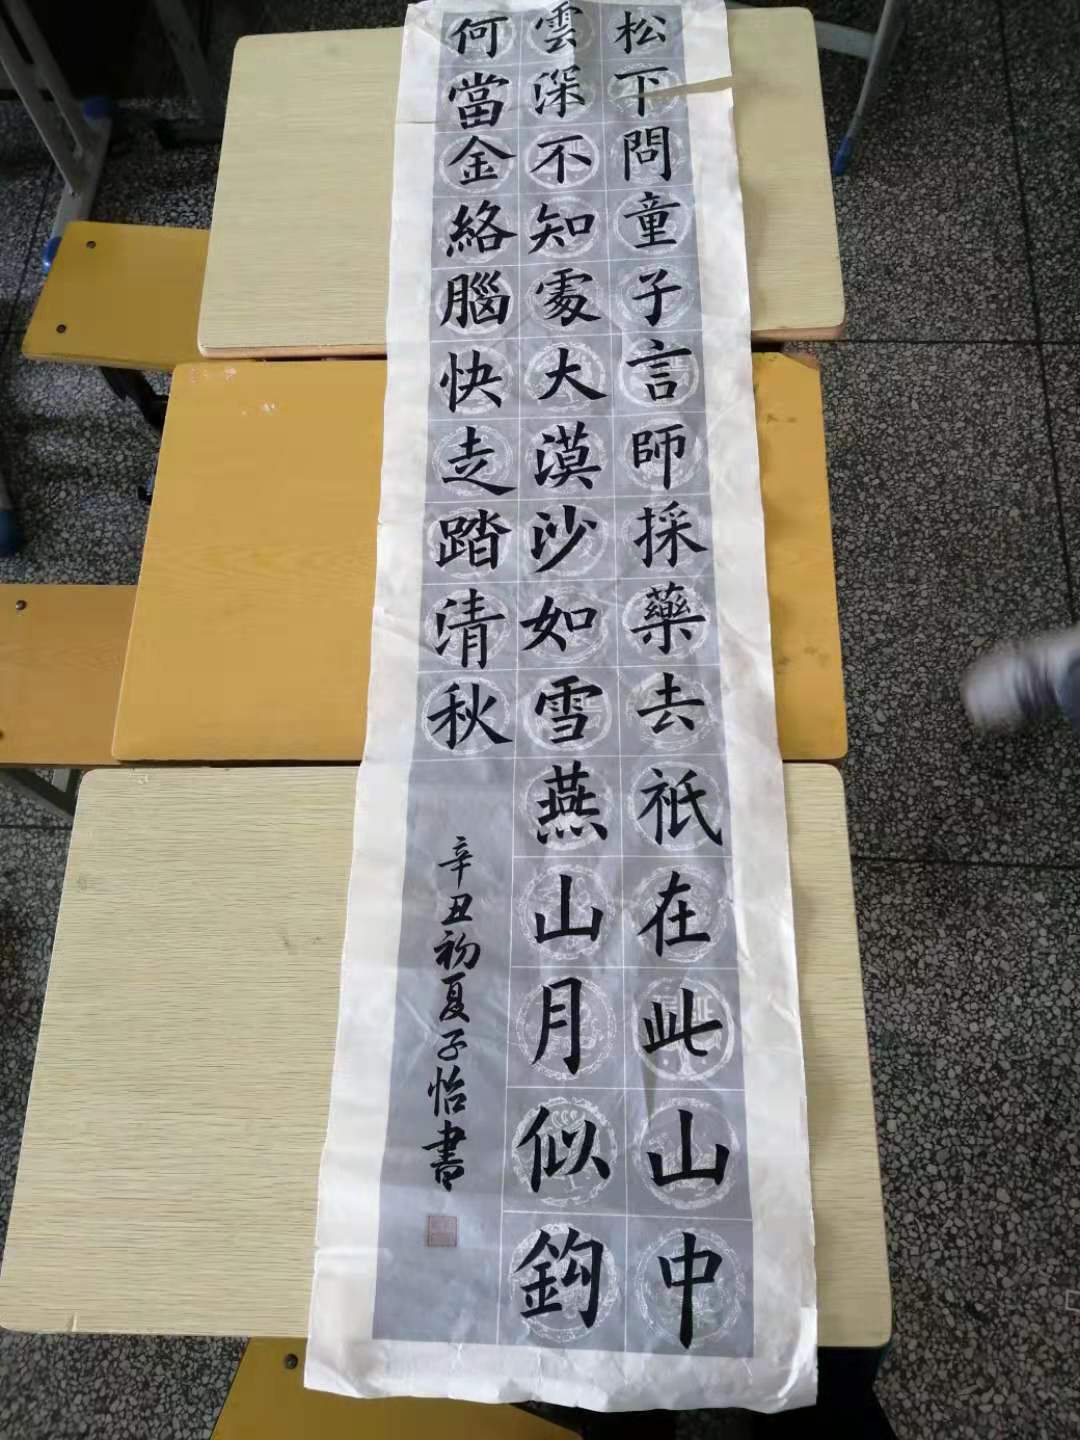 松下問童子言師採藥去祇在此山中
雲深不知處大漠沙如雪燕山月似鈎
何當金絡腦快走踏清秋
辛丑初夏子怡書